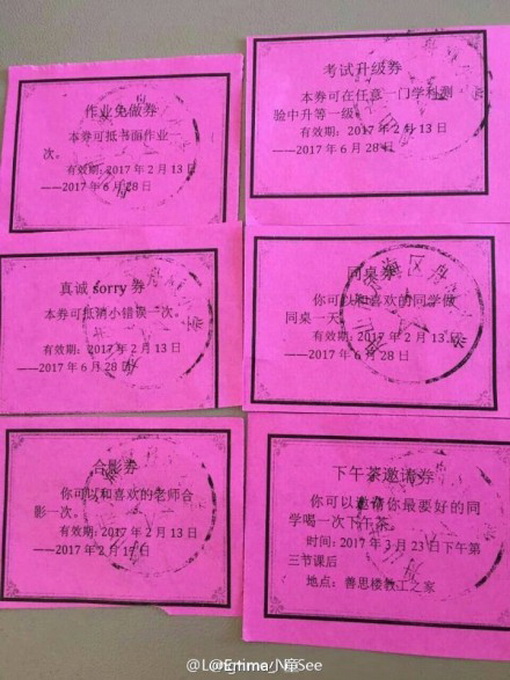 作业免做券
本券可抵书面作业一
次。
有效期：2017 年 2 月 13 日
——2017 年 6 月 28 日
考试升级券
本券可在任意一门学科测
验中升等一级。
有效期：2017 年 2 月 13 日
——2017 年 6 月 28 日
真诚 sorry 券
本券可抵消小错误一次。
有效期：2017 年 2 月 13 日
——2017 年 6 月 28 日
同桌券
你可以和喜欢的同学做
同桌一天。
有效期：2017 年 2 月 13 日
——2017 年 6 月 28 日
合影券
你可以和喜欢的老师合
影一次。
有效期：2017 年 2 月 13 日
——2017 年 2 月 17 日
下午茶邀请券
你可以邀请你最要好的同
学喝一次下午茶。
时间：2017 年 3 月 23 日下午第
三节课后
地点：善思楼教工之家